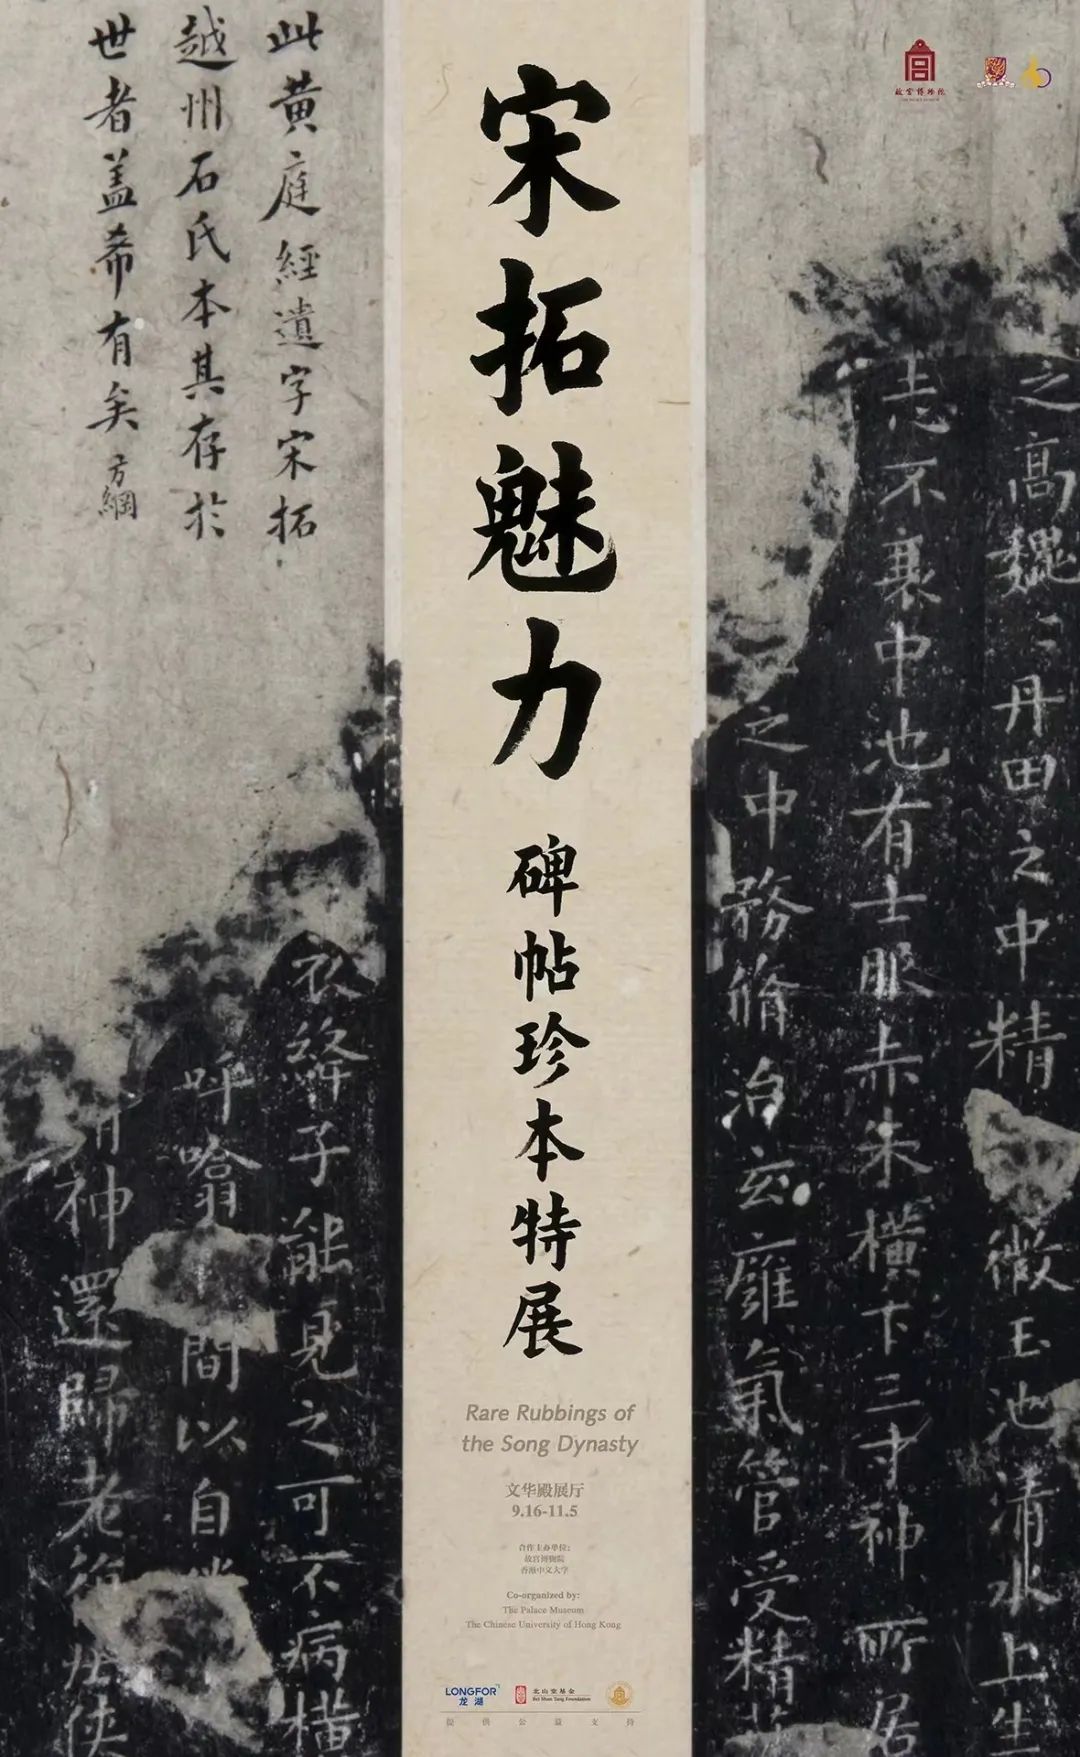 宋拓魅力
碑帖珍本特展
Rare Rubbings of
the Song Dynasty
文华殿展厅
9.16-11.5
合作主办单位:
故宫博物院
香港中文大学
Co-organized by:
The Palace Museum
The Chinese University of Hong Kong
LONGFOR
龙湖
北山堂基金
Bei Shan Tang Foundation
提供公益支持
故宫博物院
此黄庭經遺字宋拓
越州石氏本其存於
世者盖希有矣
方綱
之高魏〻丹田之中精
微玉池清水上生
志不衰中池有士服赤朱橫下三寸神
所居
之中務脩治玄廱氣管受精
衣絳子能見之可不病橫
呼噏
間以自
神還歸老
俠